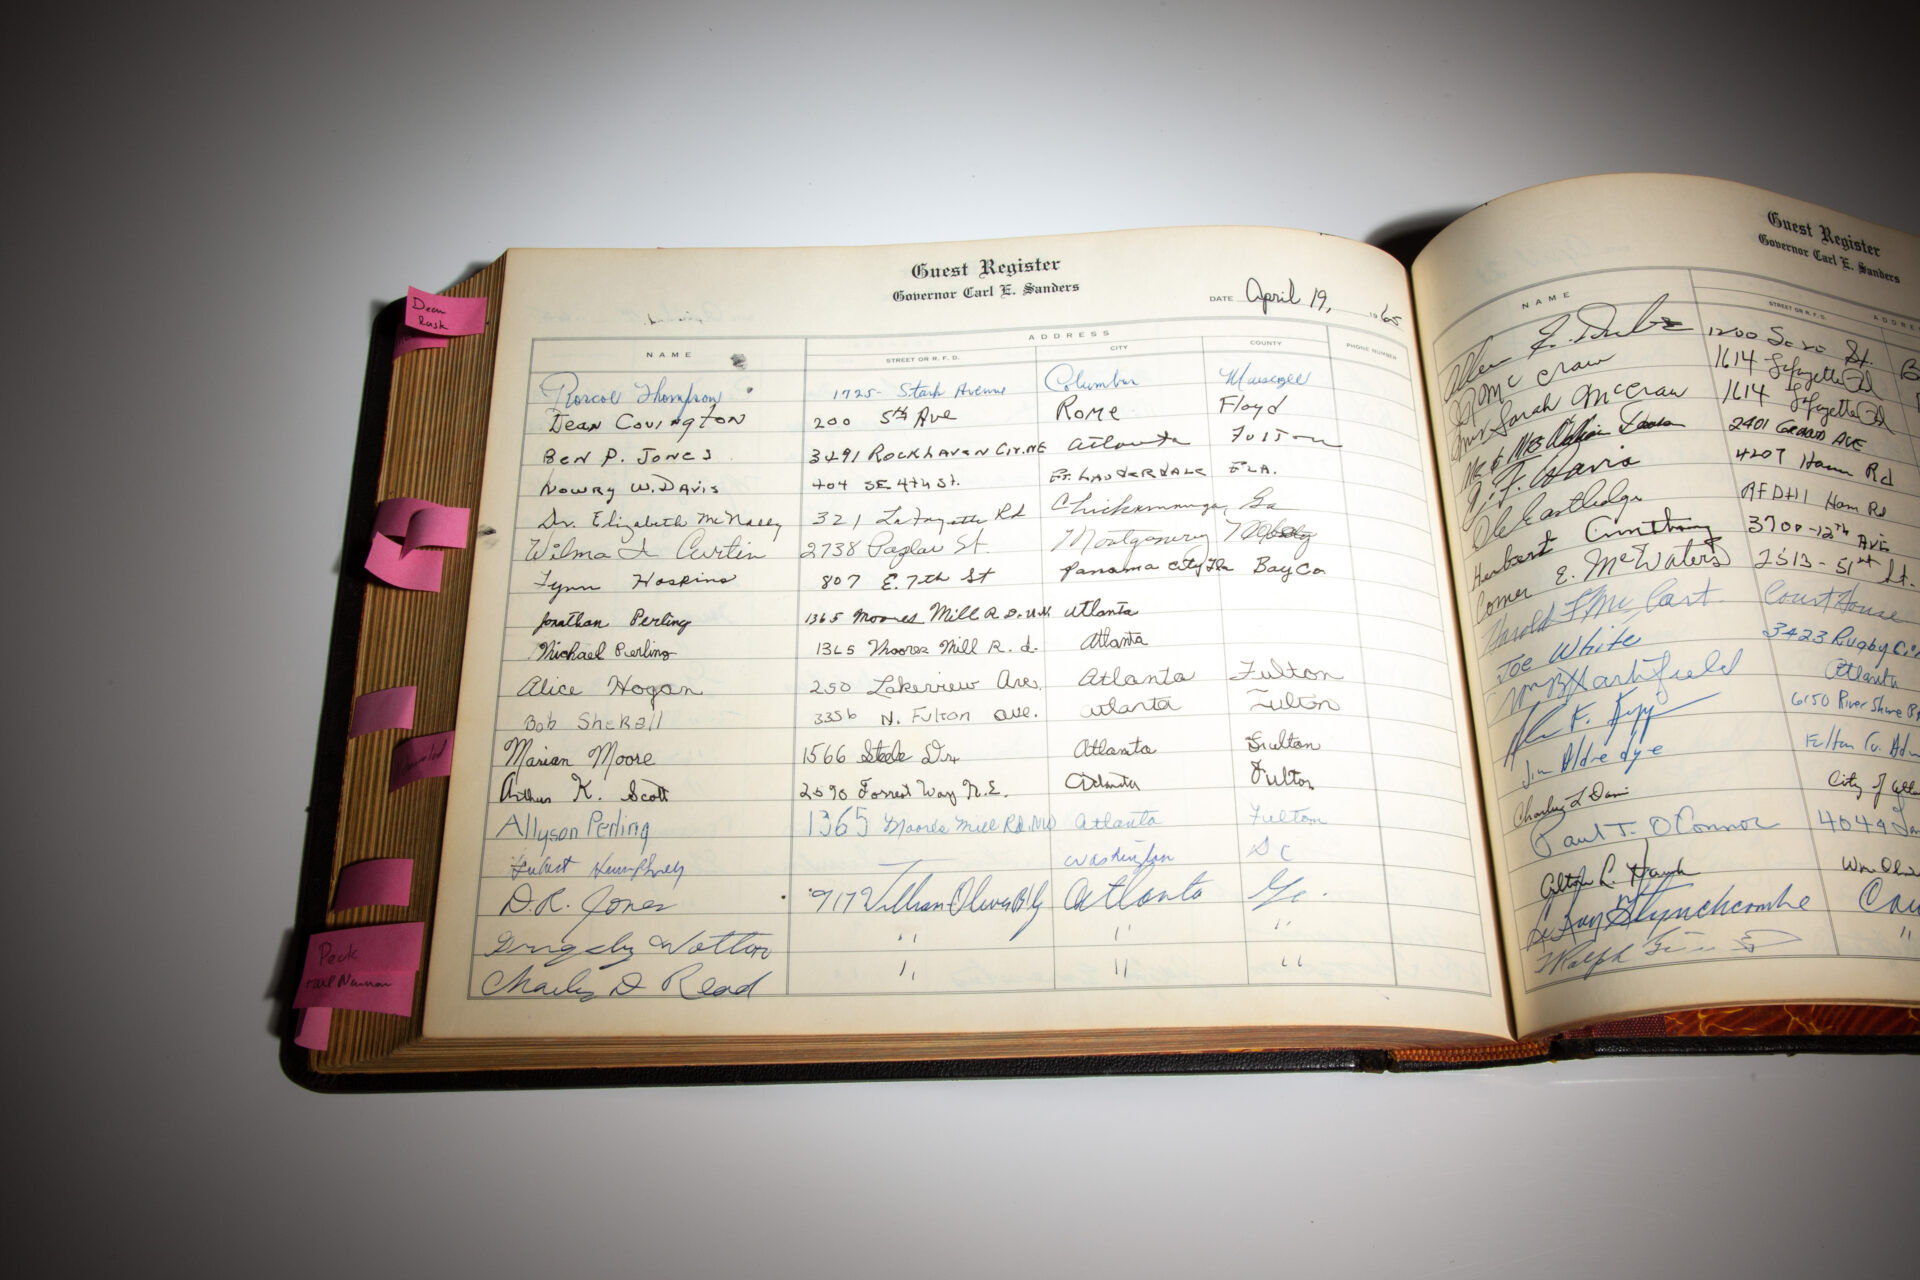 Dean Rusk
Peck
Guest Register
Governor Carl E. Sanders
DATE April 19, 1965
NAME
ADDRESS
STREET OR R. F. D.
CITY
COUNTY
PHONE NUMBER
Roscoe Thompson 1725- Stark Avenue Columbus Muscogee
Dean Covington 200 5th Ave Rome Floyd
Ben P. Jones 3491 Rockhaven Cir. NE Atlanta Fulton
Nowry W. Davis 404 SE 4th St. Ft. Lauderdale FLA.
Dr. Elizabeth McNally 321 Lafayette Rd Chickamauga, Ga
Wilma L Curtin 2738 St. Montgomery
Lynn Hoskins 807 E. 7th St Panama City Fla Bay Co
Jonathan Perling 1365 Moores Mill Rd. N.W. Atlanta
Michael Perling 1365 Moores Mill R. d. Atlanta
Alice Hogan 250 Lakeview Ave. Atlanta Fulton
Bob Sherell 3356 N. Fulton ave. Atlanta Fulton
Marian Moore 1566 Dr. Atlanta Fulton
Arthur K. Scott 2590 Forrest Way N.E. Atlanta Fulton
Allyson Perling 1365 Moores Mill Rd. NW Atlanta Fulton
Hubert Humphrey Washington DC
D. R. Jones 917 William Oliver Bldg Atlanta Ga.
Wotton " " "
Charles D Read " " "
Guest Register
Governor Carl E. Sanders
NAME
STREET OR R. F. D.
ADDRE
1200 St.
McCraw 1614 Lafayette Rd
Mrs Sarah McCraw 1614 Lafayette Rd
Mr & Mrs 2401 AVE
Davis 4207 Hamm Rd
RFD#1 Ham Rd
Herbert 3700-12th Ave
Comer E. McWaters 2513-51st St.
Harold F Mc Cart. Court House
Joe White 3423 Rugby
Wm B Hartsfield Atlanta
6150 River Shore
Jim Aldredge Fulton Co. Adm
Charles L Davis City of Atla
Paul T. O'Connor 4049
Alton L. Hawk Wm Oliv
Lynchcombe
Ralph "